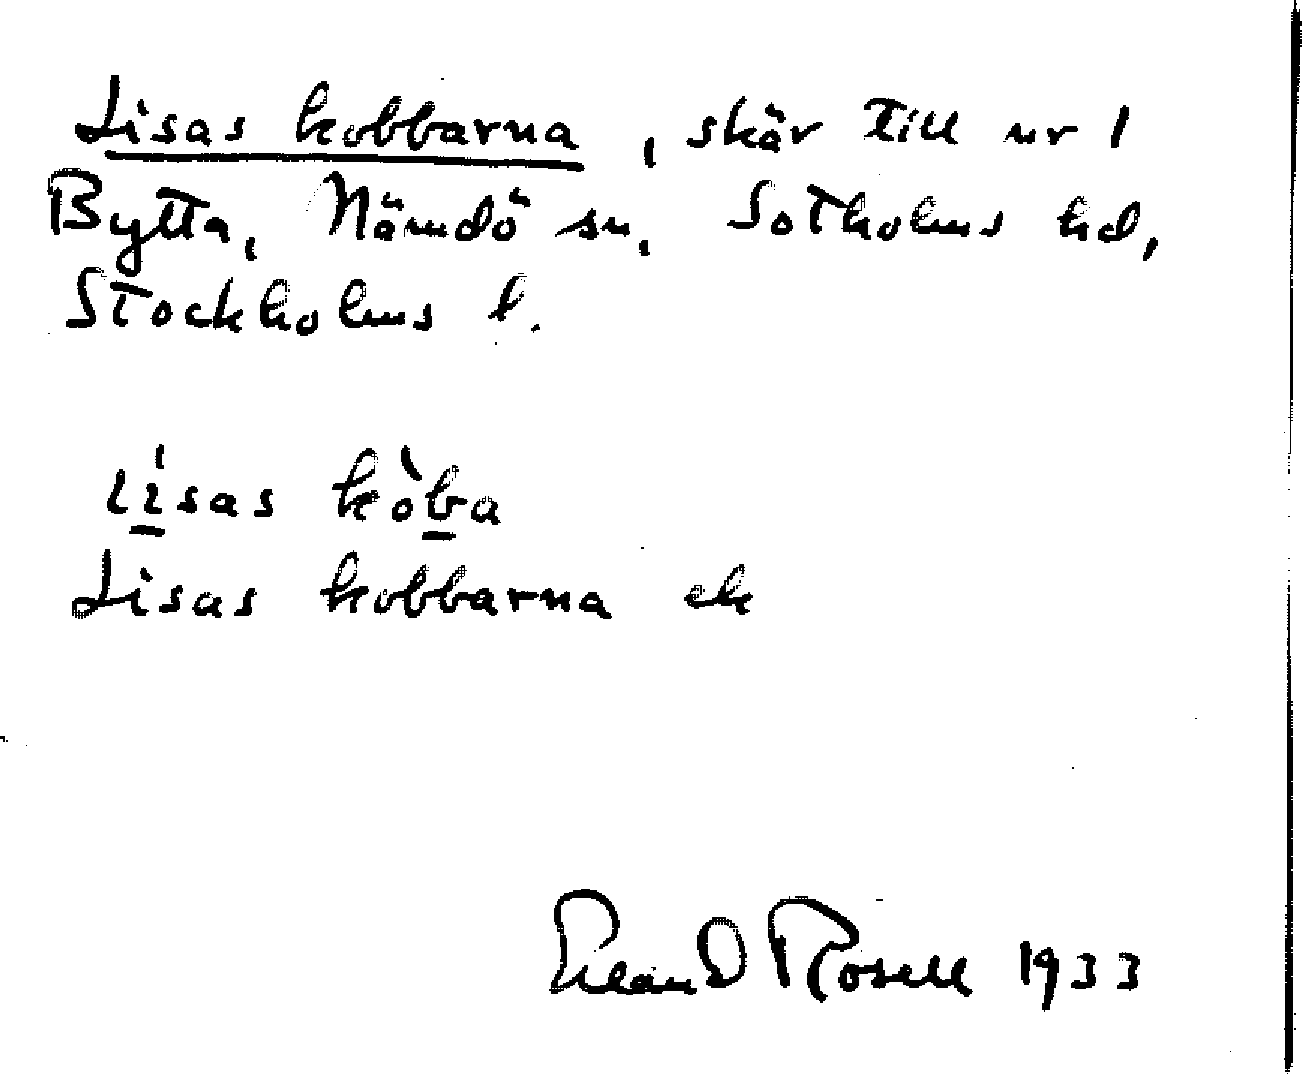 Lisas kobbarna, skär till nr 1
Bytta, Nämdö sn, Sotholms hd,
Stockholms l.
lísas kòba
Lisas kobbarna ek
Erland Rosell 1933